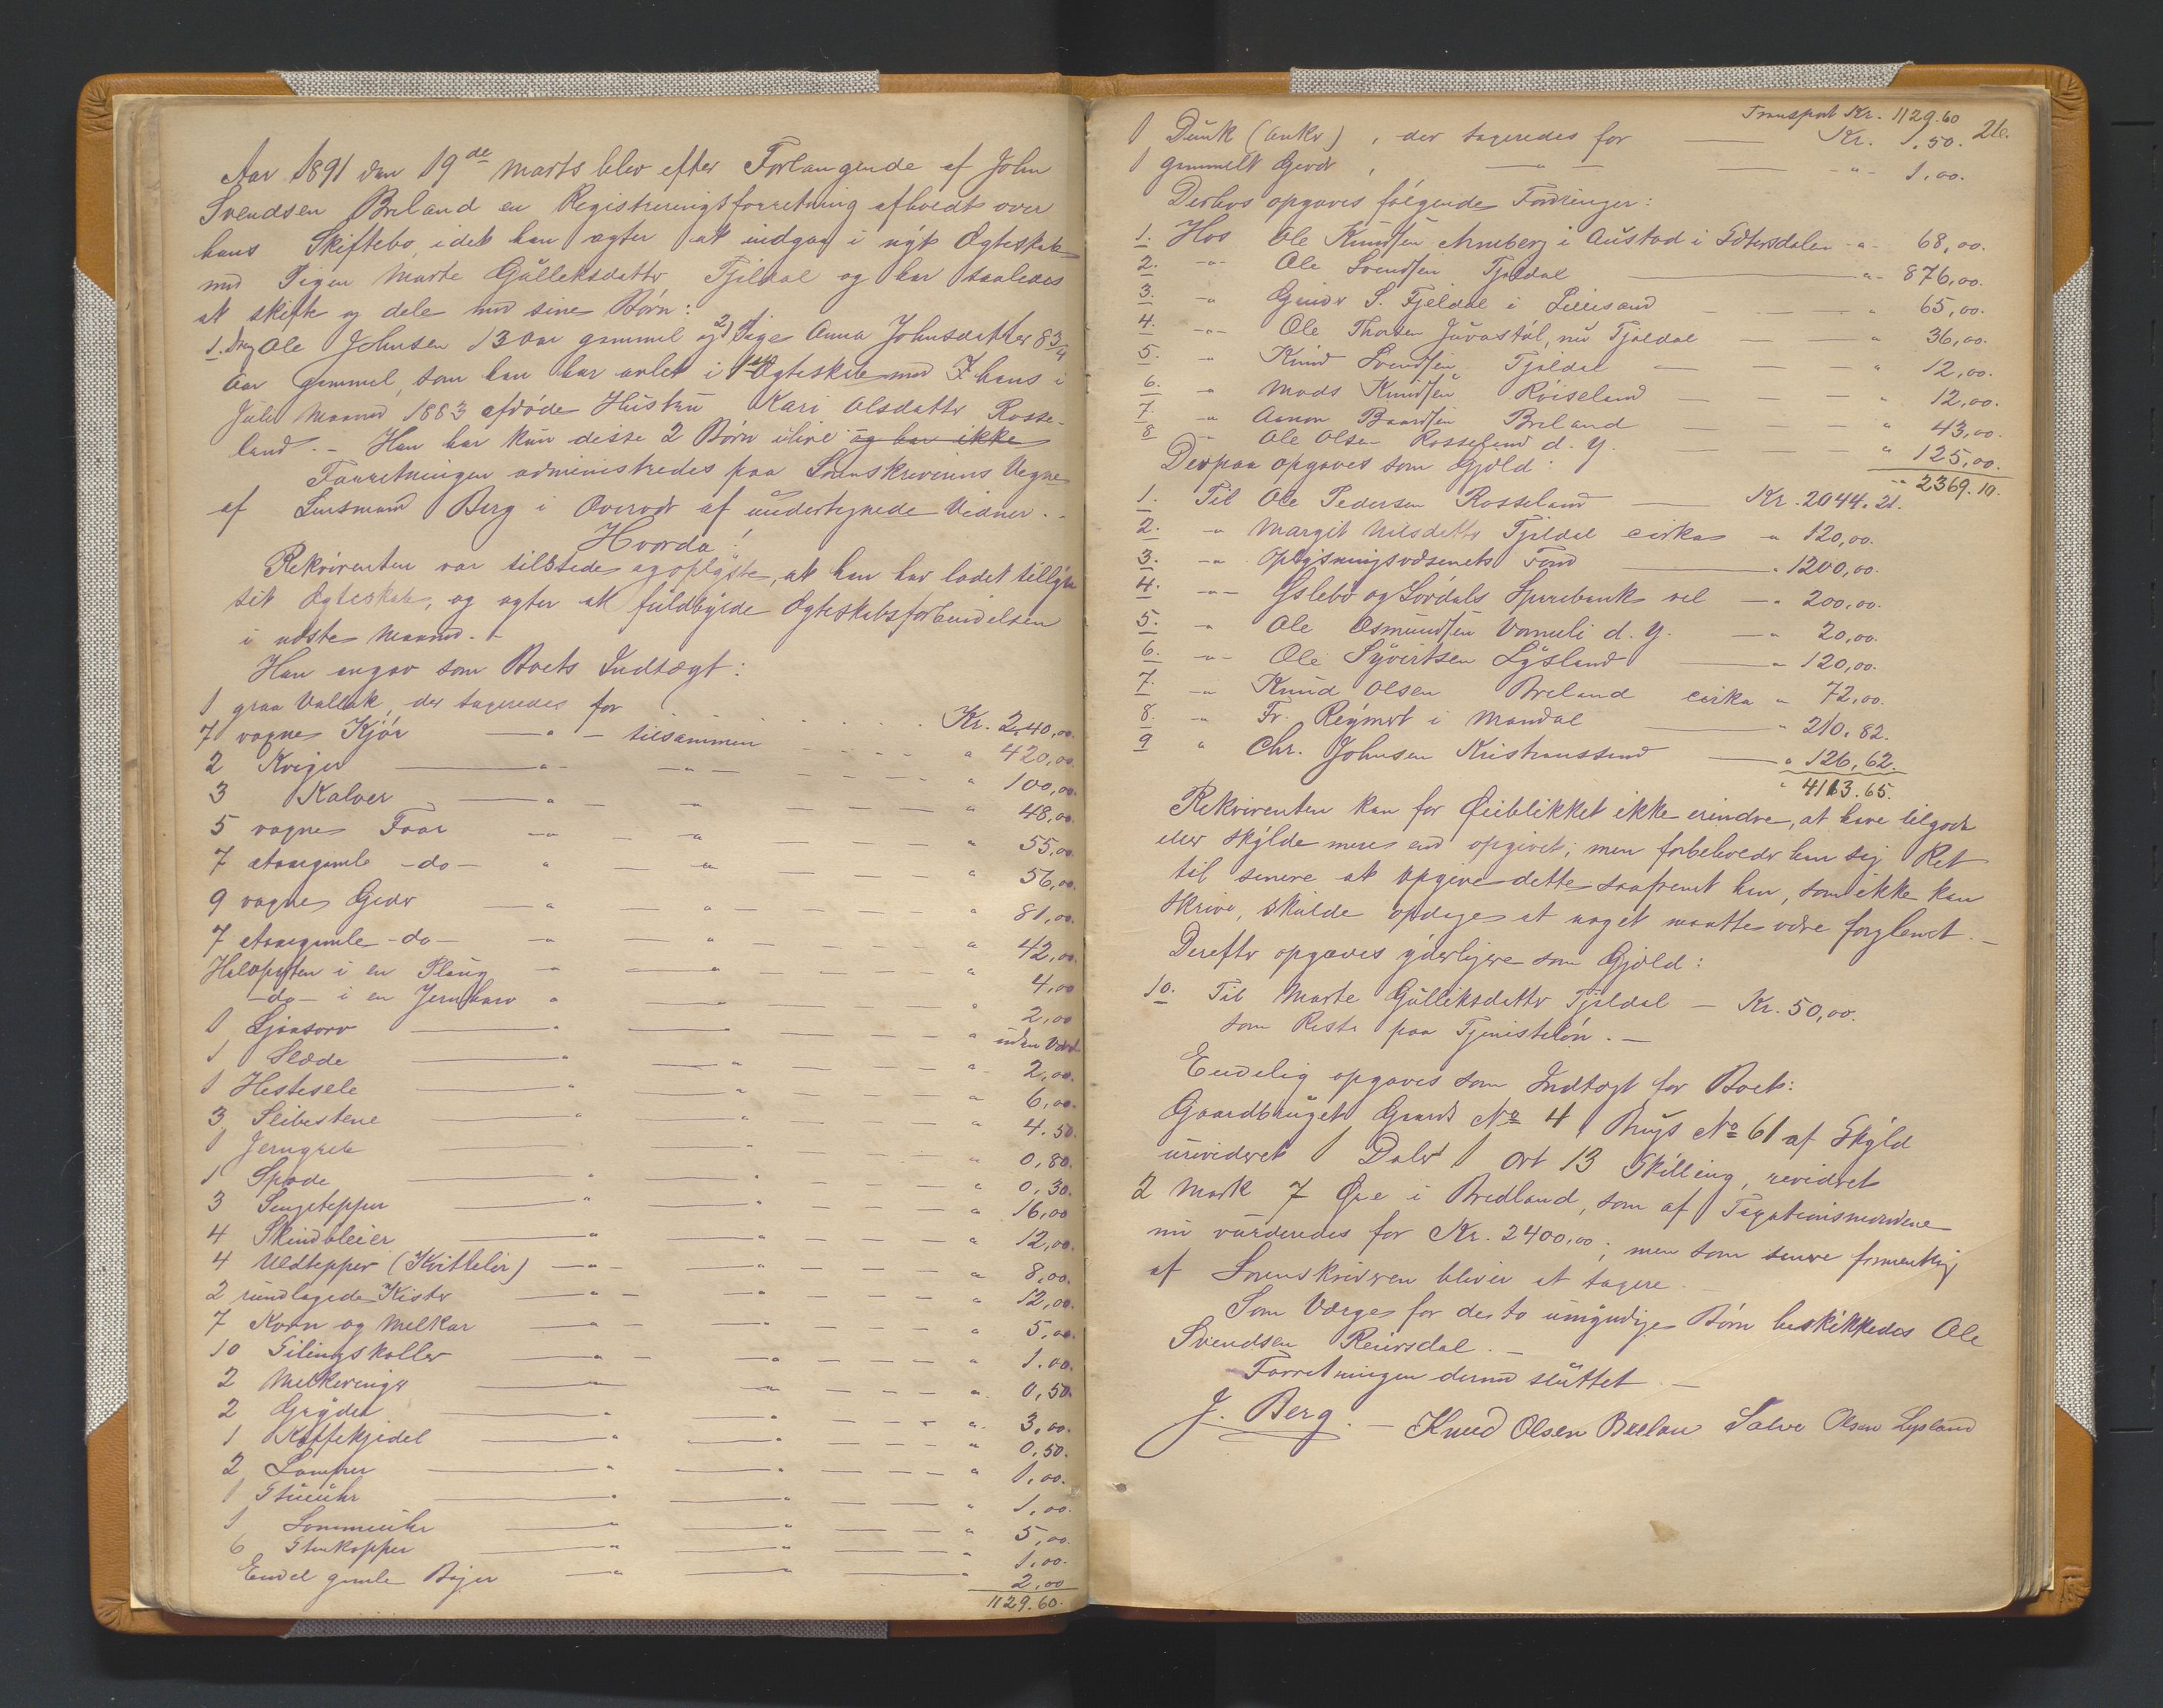 Aar 1891 den 19de Marts blev efter Forlangende af John
Svendsen Breland en Registreringsforretning afholdt over
hans Skiftebo, idet han agter at indgaa i nyt Ægteskab
med Pigen Marte Gulleksdatter Fjeldal og har saaledes
at skifte og dele med sine Børn:
1. Dreng Ole Johnsen 13 Aar gammel og 2) Pige Anna Johnsdatter 8 3/4
Aar gammel, som han har avlet i 1ste Ægteskab med hans i
Juli Maaned 1883 afdøde Hustru Kari Olsdatter Rosse-
land. - Han har kun disse 2 Børn ilive og har ikke
Forretningen administredes paa Sorenskriverens Vegne
af Lensmand Berg i Overvær af undertegnede Vidner. -
Hvorda!
Rekvirenten var tilstede og oplyste, at han har ladet tillyse
sit Ægteskab, og agter at fuldbyrde Ægteskabsforbindelsen
i næste Maaned. -
Han angav som Boets Indtægt:
1 graa Vallak, der taxeredes for Kr. 240,00.
7 voxne Kjør — " — tilsammen " 420,00.
2 Kviger — " — " — " 100,00.
3 Kalver — " — " — " 48,00.
5 voxne Faar — " — " — " 55,00
7 etaargamle - do - " — " — " 56,00.
9 voxne Geder — " — " — " 81,00.
7 etaargamle - do - " — " — " 42,00.
Halvparten i en Ploug " — " — " 4,00
- do - i en Jernharv " — " — " 2,00
1 Ljaaorv — " — " uden Værd
1 Slæde — " — " — " 2,00.
1 Hestesele — " — " — " 6,00.
3 Slibestene — " — " — " 4.50.
1 Jerngreb — " — " 0,80.
1 Spade — " — " — " 0,30.
3 Sengetepper — " — " — " 16,00
4 Skindbleier — " — " — " 12,00.
4 Uldtepper (Kvitteler) — " — " — " 8,00.
2 rundlagede Kister — " — " — " 12,00.
7 Korn og Melkar — " — " — " 5,00.
10 Tilingskoller — " — " — " 1.00.
2 Melkeringer — " — " — " 0,50.
2 Gryder — " — " — " 3,00.
1 Kaffekjedel — " — " — " 0,50.
2 Lamper — " — " — " 1,00.
1 Stueuhr — " — " — " 1,00.
1 Lommeuhr — " — " — " 5,00.
6 Stenkopper — " — " — " 1,00.
Endel gamle Bøger — " — " — " 2,00
1129.60.
Transport Kr. 1129.60
26.
1 Dunk (Anker), der taxeredes for — Kr. 1,50.
1 gammelt Gevær, — " — — " - 1,00.
Derhos opgaves følgende Fordringer:
1. Hos Ole Knudsen Arneberg i Austad i Sætersdalen - " - 68,00.
2. - " - Ole Svendsen Fjeldal — " - 876,00.
3. - " Gunder S. Fjeldal i Lillesand — " 65,00.
4. - " - Ole Thorsen Juvastøl, nu Fjeldal — " 36,00.
5. " Knud Svendsen Fjeldal — " 12,00.
6. - " Mads Knudsen Røiseland — " 12,00.
7. - " Aanon Baardsen Breland — " 43,00.
8 " Ole Olsen Rosseland d. y. — " 125,00.
" 2369.10.
Derpaa opgaves som Gjæld:
1. Til Ole Pedersen Rosseland — Kr. 2044.21.
2. - " Margit Nilsdatter Fjeldal cirka " 120,00.
3. - " Oplysningsvæsenets Fond — " 1200,00.
4. - " - Øslebø og Lørdals Sparebank vel — " 200,00.
5. - " Ole Osmundsen Vomuli d. y. — " 20,00.
6. - " - Ole Syvertsen Lysland — " 120,00.
7. - " Knud Olsen Breland cirka " 72,00.
8. - " Fr. Reymert i Mandal — " 210.82.
9 " Chr. Johnsen Kristianssand — " 126,62.
" 4113.65.
Rekvirenten kan for Øieblikket ikke erindre, at have tilgode
eller skylde mere end opgivet; men forbeholder han sig Ret
til senere at opgive dette saafremt han, som ikke kan
skrive, skulde opdage at noget maatte være forglemt. -
Derefter opgaves yderligere som Gjæld:
10. Til Marte Gulliksdatter Fjeldal — Kr. 50,00.
som Rest paa Tjenesteløn. —
Endelig opgaves som Indtægt for Boet:
Gaardbruget Gaards No 4, Brugs No 61 af Skyld
urevideret 1 Daler 1 Ort 13 Skilling, revideret
2 Mark 7 Øre i Bredland, som af Taxationsmændene
nu vurderedes for Kr. 2400,00; men som senere formentlig
af Sorenskriveren bliver at taxere. -
Som Værge for de to umyndige Børn beskikkedes Ole
Svendsen Reiersdal. -
Forretningen dermed sluttet. —
J. Berg. - Knud Olsen Brelan Salve Olsen Lysland